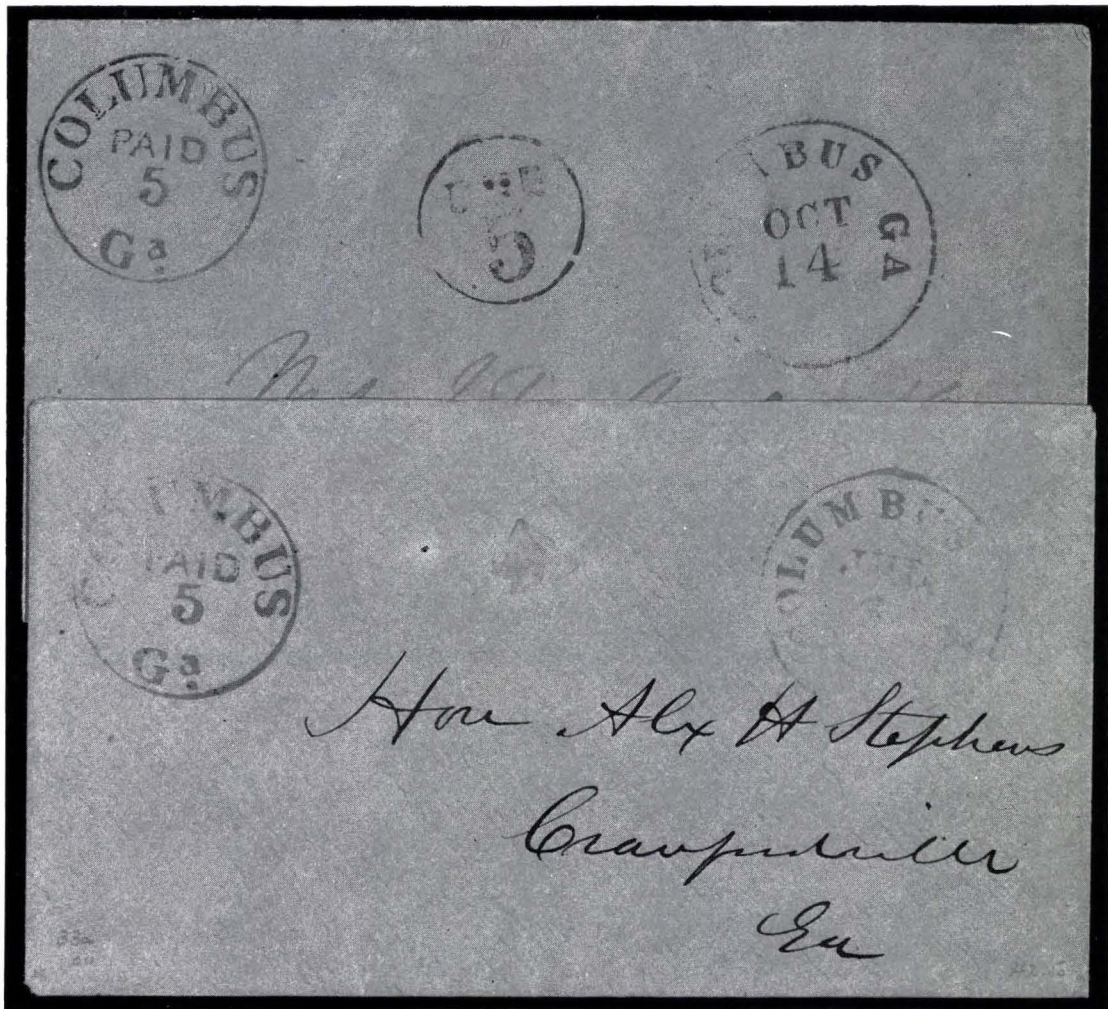 COLUMBUS
PAID
5
Ga.
DUE
5
BUS GA
OCT
14
UMBUS
PAID
5
Ga.
OLUMBUS
Hon Alex H Stephens
Crawfordville
Ga